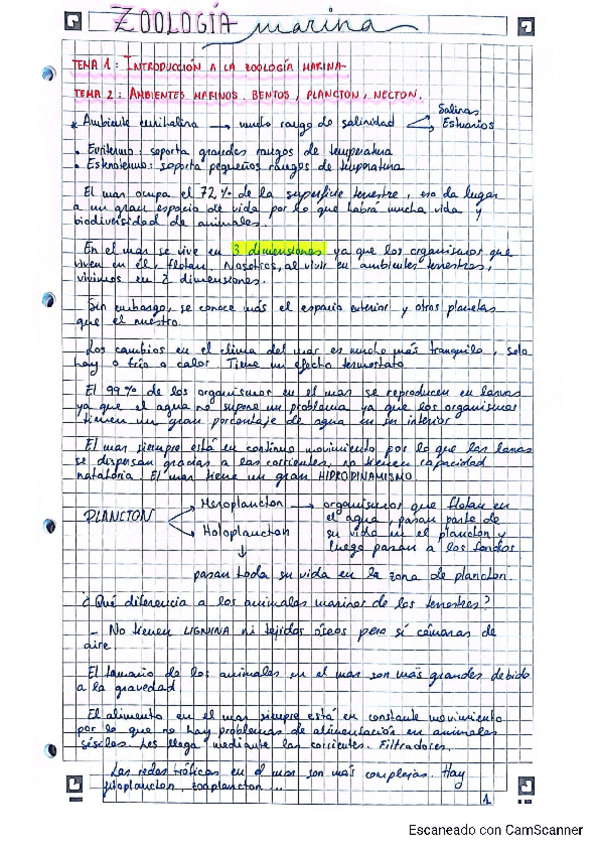 ZOOLOGÍA marina
TEMA 1: INTRODUCCIÓN A LA ZOOLOGÍA MARINA
TEMA 2: AMBIENTES MARINOS. BENTOS, PLANCTON, NECTON.
* Ambiente eurihalina → mucho rango de salinidad Salinas Estuarios
• Euritermo: soporta grandes rangos de temperatura
• Estenotermo: soporta pequeños rangos de temperatura
El mar ocupa el 72% de la superficie terrestre, eso da lugar
a un gran espacio de vida por lo que habrá mucha vida y
biodiversidad de animales.
En el mar se vive en 3 dimensiones ya que los organismos que
viven en él, flotan. Nosotros, al vivir en ambientes terrestres,
vivimos en 2 dimensiones.
Sin embargo, se conoce más el espacio exterior y otros planetas
que el nuestro.
Los cambios en el clima del mar es mucho más tranquilo, solo
hay o frío o calor. Tiene un efecto termostato
El 99% de los organismos en el mar se reproducen en larvas
ya que el agua no supone un problema ya que los organismos
tienen un gran porcentaje de agua en su interior
El mar siempre está en continuo movimiento por lo que las larvas
se dispersan gracias a las corrientes, no tienen capacidad
natatoria. El mar tiene un gran HIDRODINAMISMO.
PLANCTON
Meroplancton → organismos que flotan en
el agua, pasan parte de
su vida en el plancton y
luego pasan a los fondos
Holoplancton
↓
pasan toda su vida en la zona de plancton.
¿Qué diferencia a los animales marinos de los terrestres?
- No tienen LIGNINA ni tejidos óseos pero sí cámaras de
aire.
El tamaño de los animales en el mar son más grandes debido
a la gravedad
El alimento en el mar siempre está en constante movimiento
por lo que no hay problemas de alimentación en animales
sésiles. Les llega mediante las corrientes. Filtradores.
Las redes tróficas en el mar son más complejas. Hay
fitoplancton, zooplancton...
1
Escaneado con CamScanner